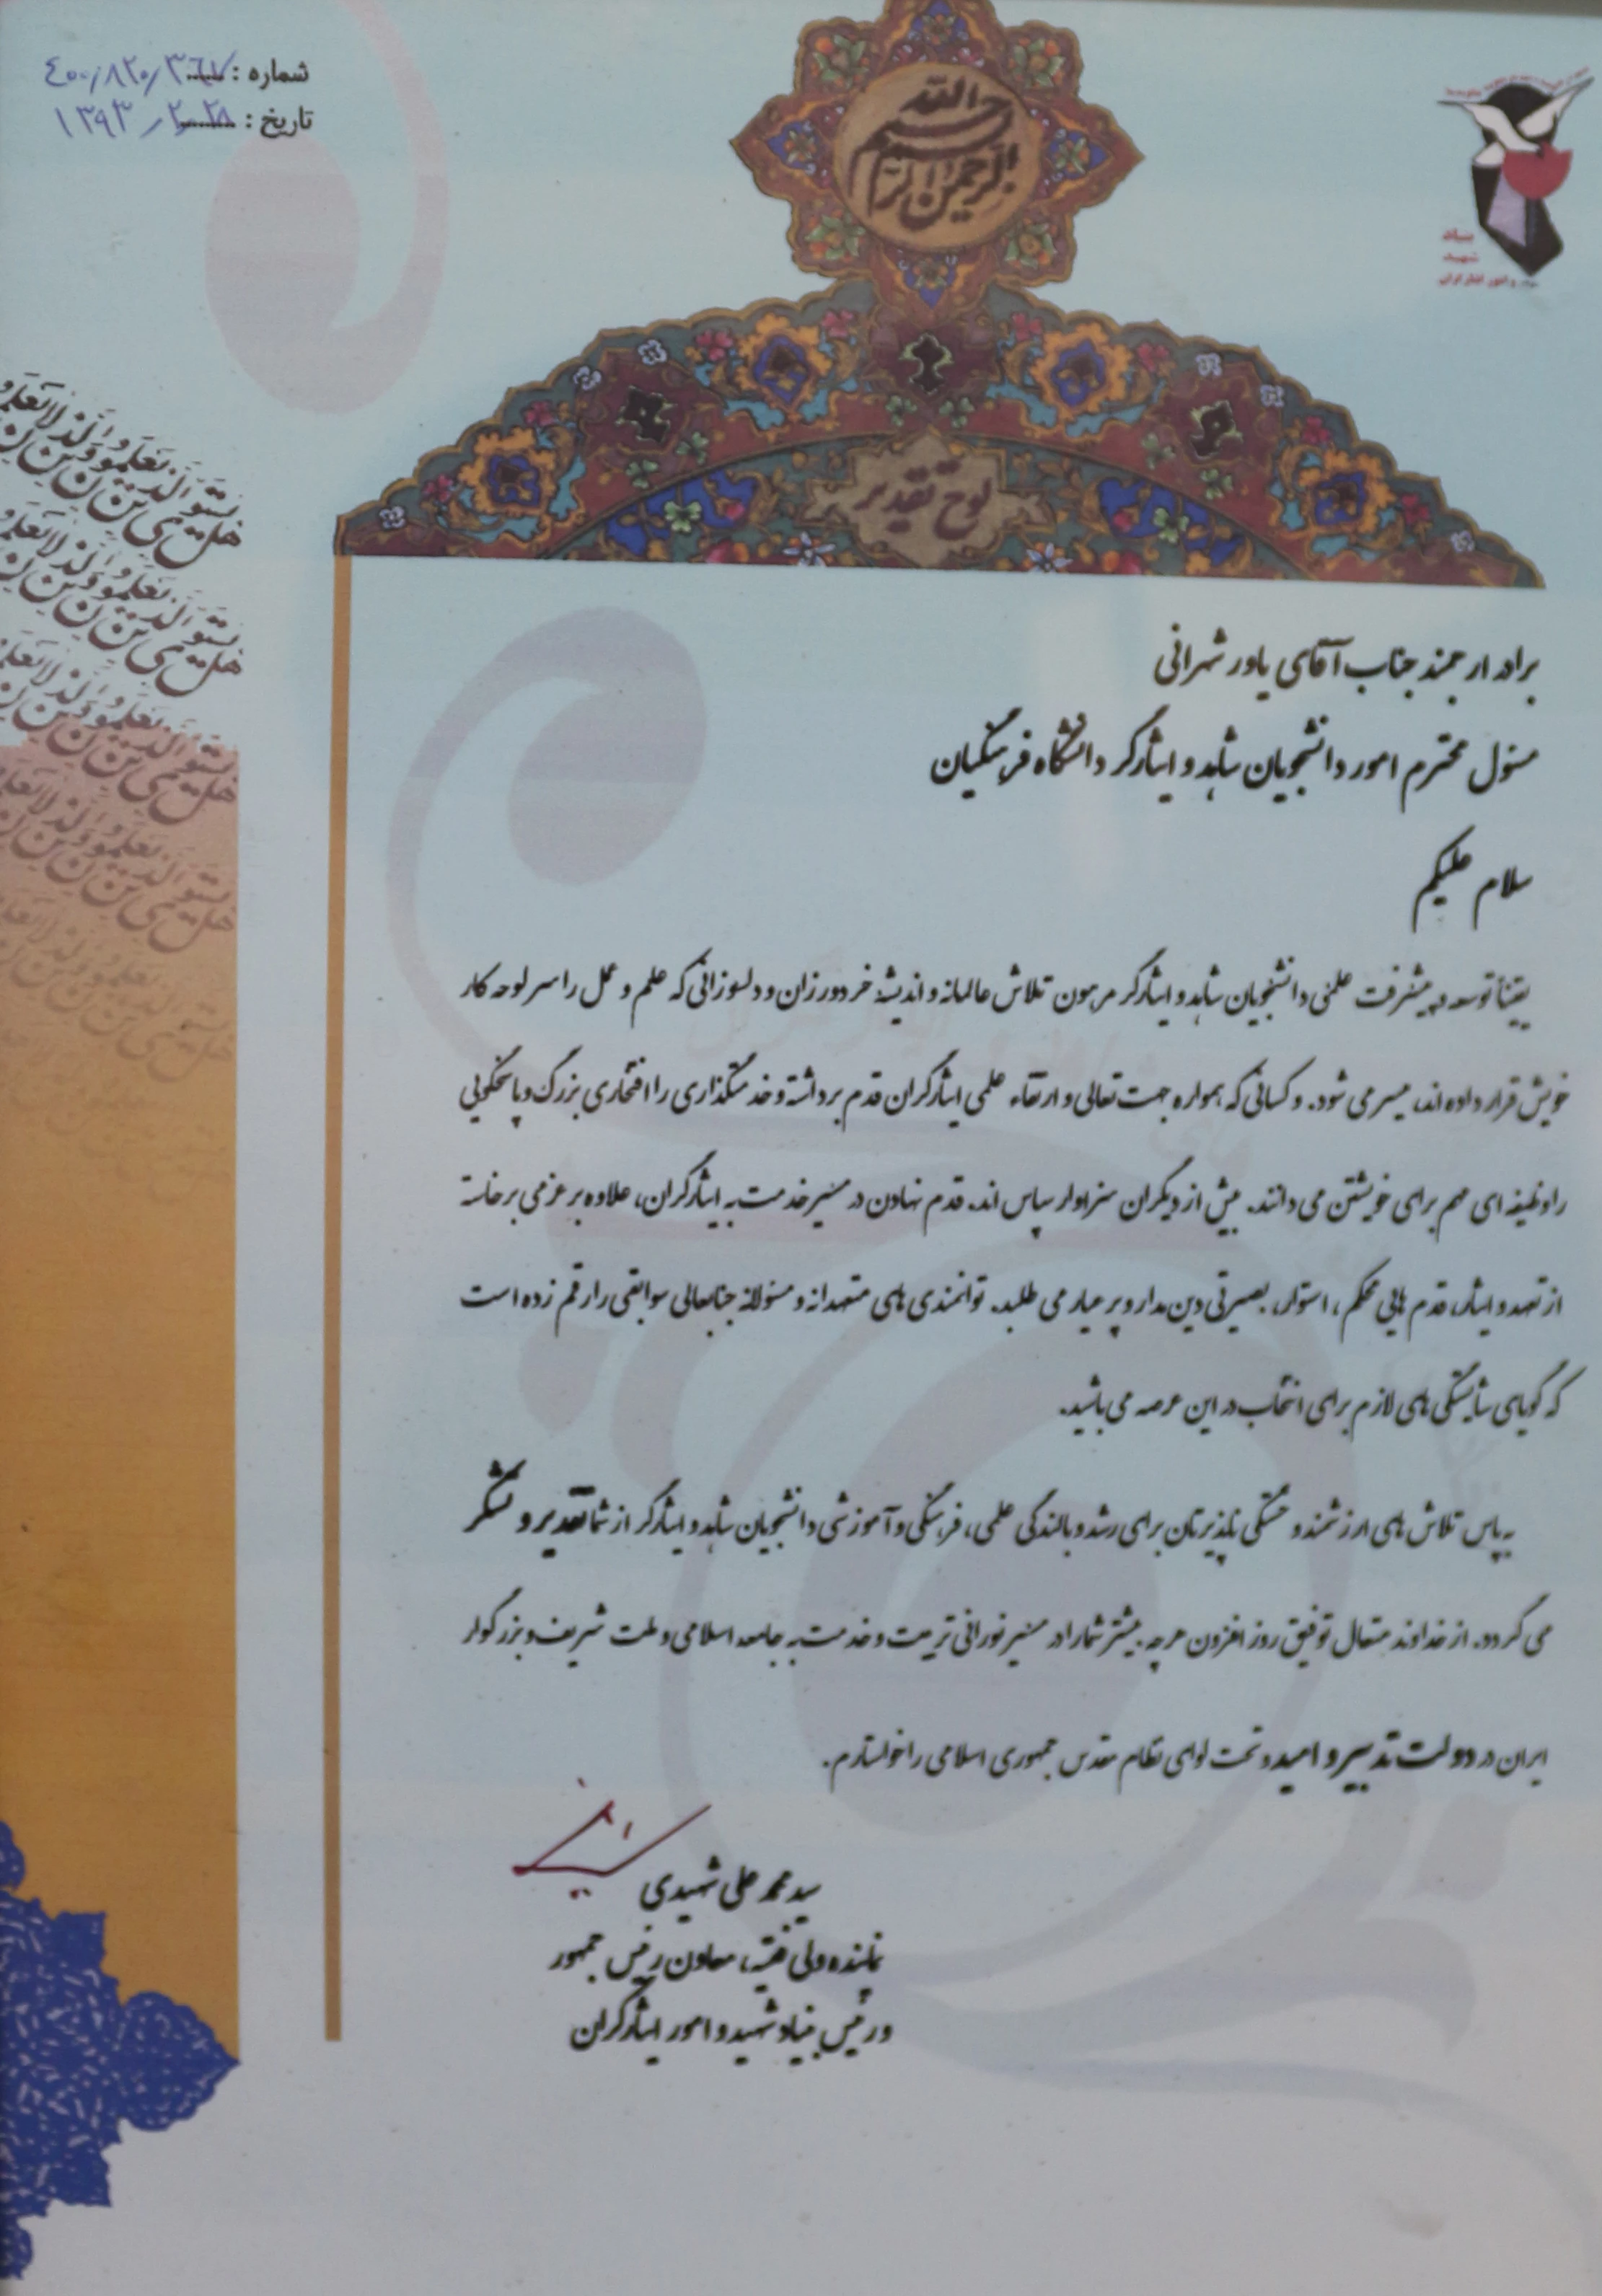 شماره : ۴۰۰/۸۲۰/۳۶۷
تاریخ : ۱۳۹۳/۲/۲۸
بسم الله الرحمن الرحیم
بنیاد
شهید
و امور ایثارگران
لوح تقدیر
برادر ارجمند جناب آقای یاور شهرانی
مسئول محترم امور دانشجویان شاهد و ایثارگر دانشگاه فرهنگیان
سلام علیکم
یقیناً توسعه و پیشرفت علمی دانشجویان شاهد و ایثارگر مرهون تلاش عالمانه و اندیشهٔ خردورزان و دلسوزانی که علم و عمل را سر لوحه کار
خویش قرار داده اند، میسر می شود. و کسانی که همواره جهت تعالی و ارتقاء علمی ایثارگران قدم برداشته و خدمتگذاری را افتخاری بزرگ و پاسخگویی
را وظیفه ای مهم برای خویشتن می دانند. بیش از دیگران سزاوار سپاس اند. قدم نهادن در مسیر خدمت به ایثارگران، علاوه بر عزمی برخاسته
از تعهد و ایثار، قدم هایی محکم، استوار، بصیرتی دین مدار و پر عیار می طلبد. توانمندی های متعهدانه و مسئولانه جنابعالی سوابقی را رقم زده است
که گویای شایستگی های لازم برای انتخاب در این عرصه می باشد.
به پاس تلاش های ارزشمند و خستگی ناپذیرتان برای رشد و بالندگی علمی، فرهنگی و آموزشی دانشجویان شاهد و ایثارگر از شما تقدیر و تشکر
می گردد. از خداوند متعال توفیق روز افزون هر چه بیشتر شما را در مسیر نورانی تربیت و خدمت به جامعه اسلامی و ملت شریف و بزرگوار
ایران در دولت تدبیر و امید و تحت لوای نظام مقدس جمهوری اسلامی را خواستارم.
سید محمد علی شهیدی
نماینده ولی فقیه، معاون رئیس جمهور
و رئیس بنیاد شهید و امور ایثارگران